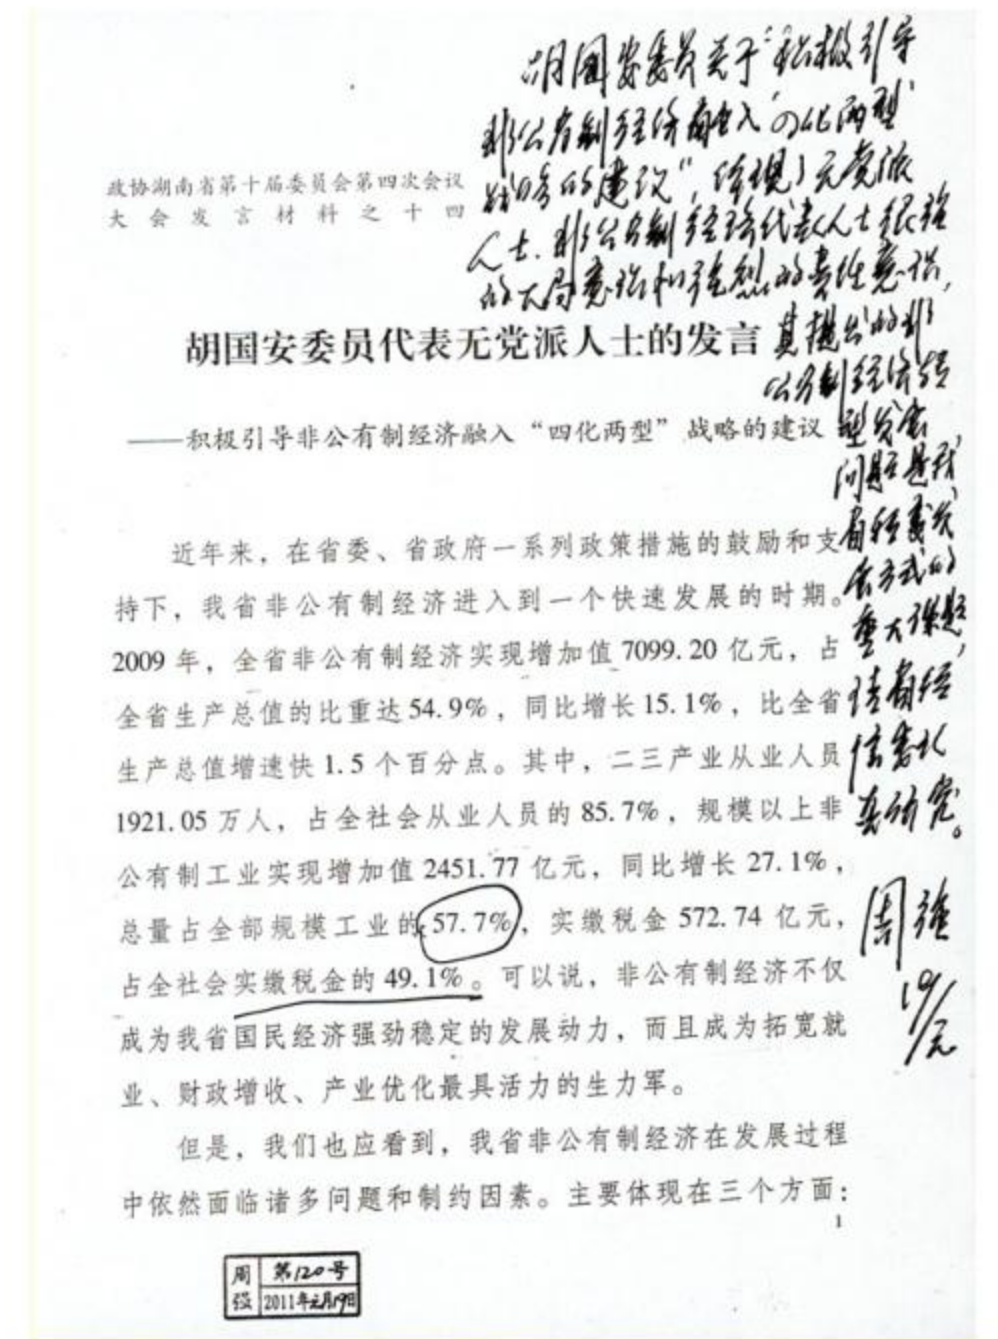 胡国安委员关于“积极引导
非公有制经济融入“四化两型”
战略的建议”，体现了无党派
人士、非公有制经济代表人士很强
的大局意识和强烈的责任意识，
其提出的非
公有制经济转
型发展
问题是我
省转变发
展方式的
重大课题，
请省经
信委认
真研究。
周强
19/元
政协湖南省第十届委员会第四次会议
大会发言材料之十四
胡国安委员代表无党派人士的发言
——积极引导非公有制经济融入“四化两型”战略的建议
近年来，在省委、省政府一系列政策措施的鼓励和支
持下，我省非公有制经济进入到一个快速发展的时期。
2009年，全省非公有制经济实现增加值7099.20亿元，占
全省生产总值的比重达54.9%，同比增长15.1%，比全省
生产总值增速快1.5个百分点。其中，二三产业从业人员
1921.05万人，占全社会从业人员的85.7%，规模以上非
公有制工业实现增加值2451.77亿元，同比增长27.1%，
总量占全部规模工业的57.7%，实缴税金572.74亿元，
占全社会实缴税金的49.1%。可以说，非公有制经济不仅
成为我省国民经济强劲稳定的发展动力，而且成为拓宽就
业、财政增收、产业优化最具活力的生力军。
但是，我们也应看到，我省非公有制经济在发展过程
中依然面临诸多问题和制约因素。主要体现在三个方面：
1
周强 第120号
2011年元月19日